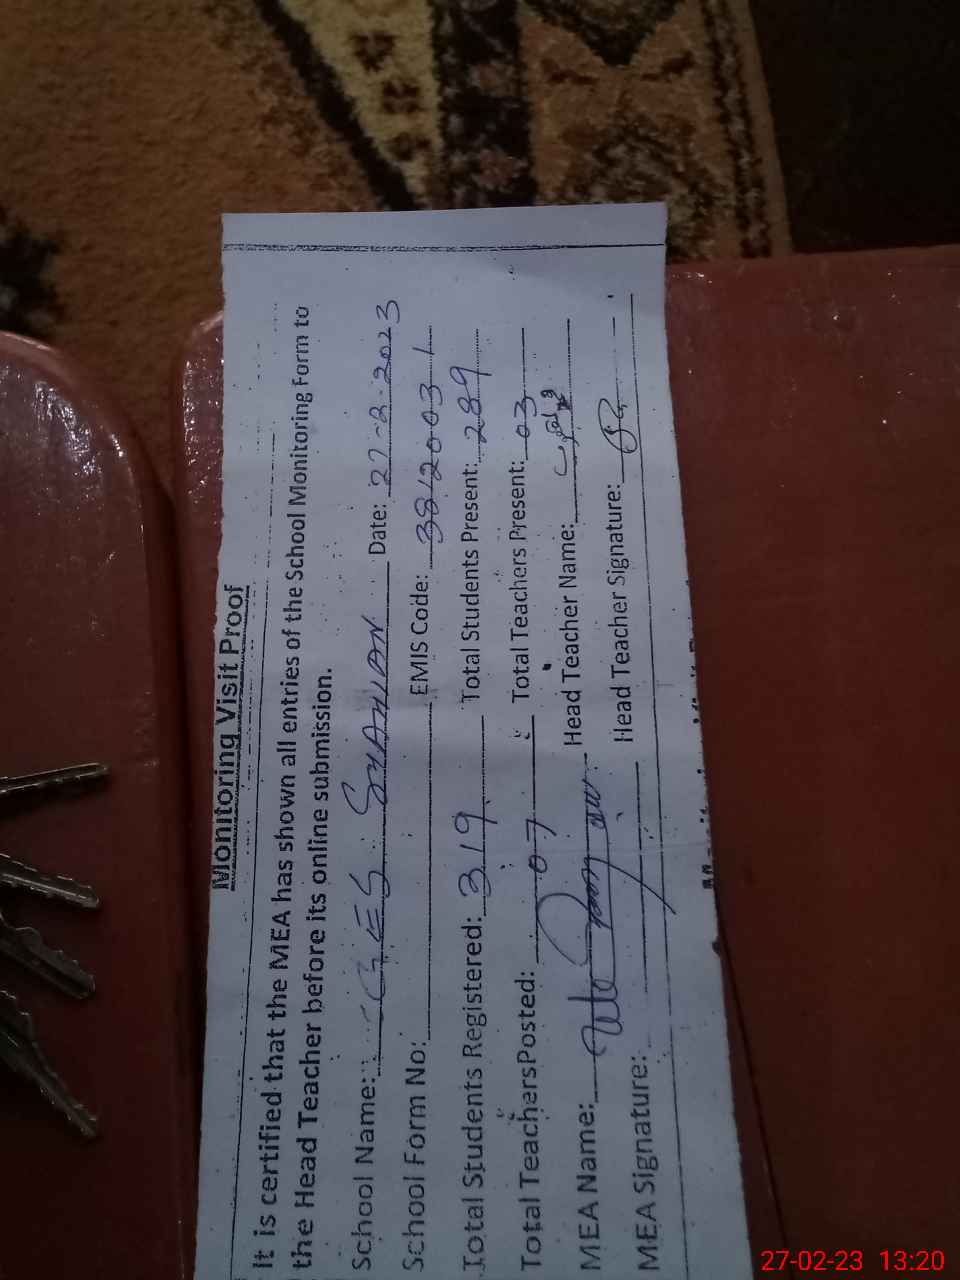 Monitoring Visit Proof
It is certified that the MEA has shown all entries of the School Monitoring Form to
the Head Teacher before its online submission.
School Name: GES SHAHIAN Date: 27-2-2023
School Form No: EMIS Code: 38120031
Total Students Registered: 319 Total Students Present: 289
Total TeachersPosted: 07 Total Teachers Present: 03
MEA Name: Head Teacher Name:
MEA Signature: Head Teacher Signature:
27-02-23 13:20